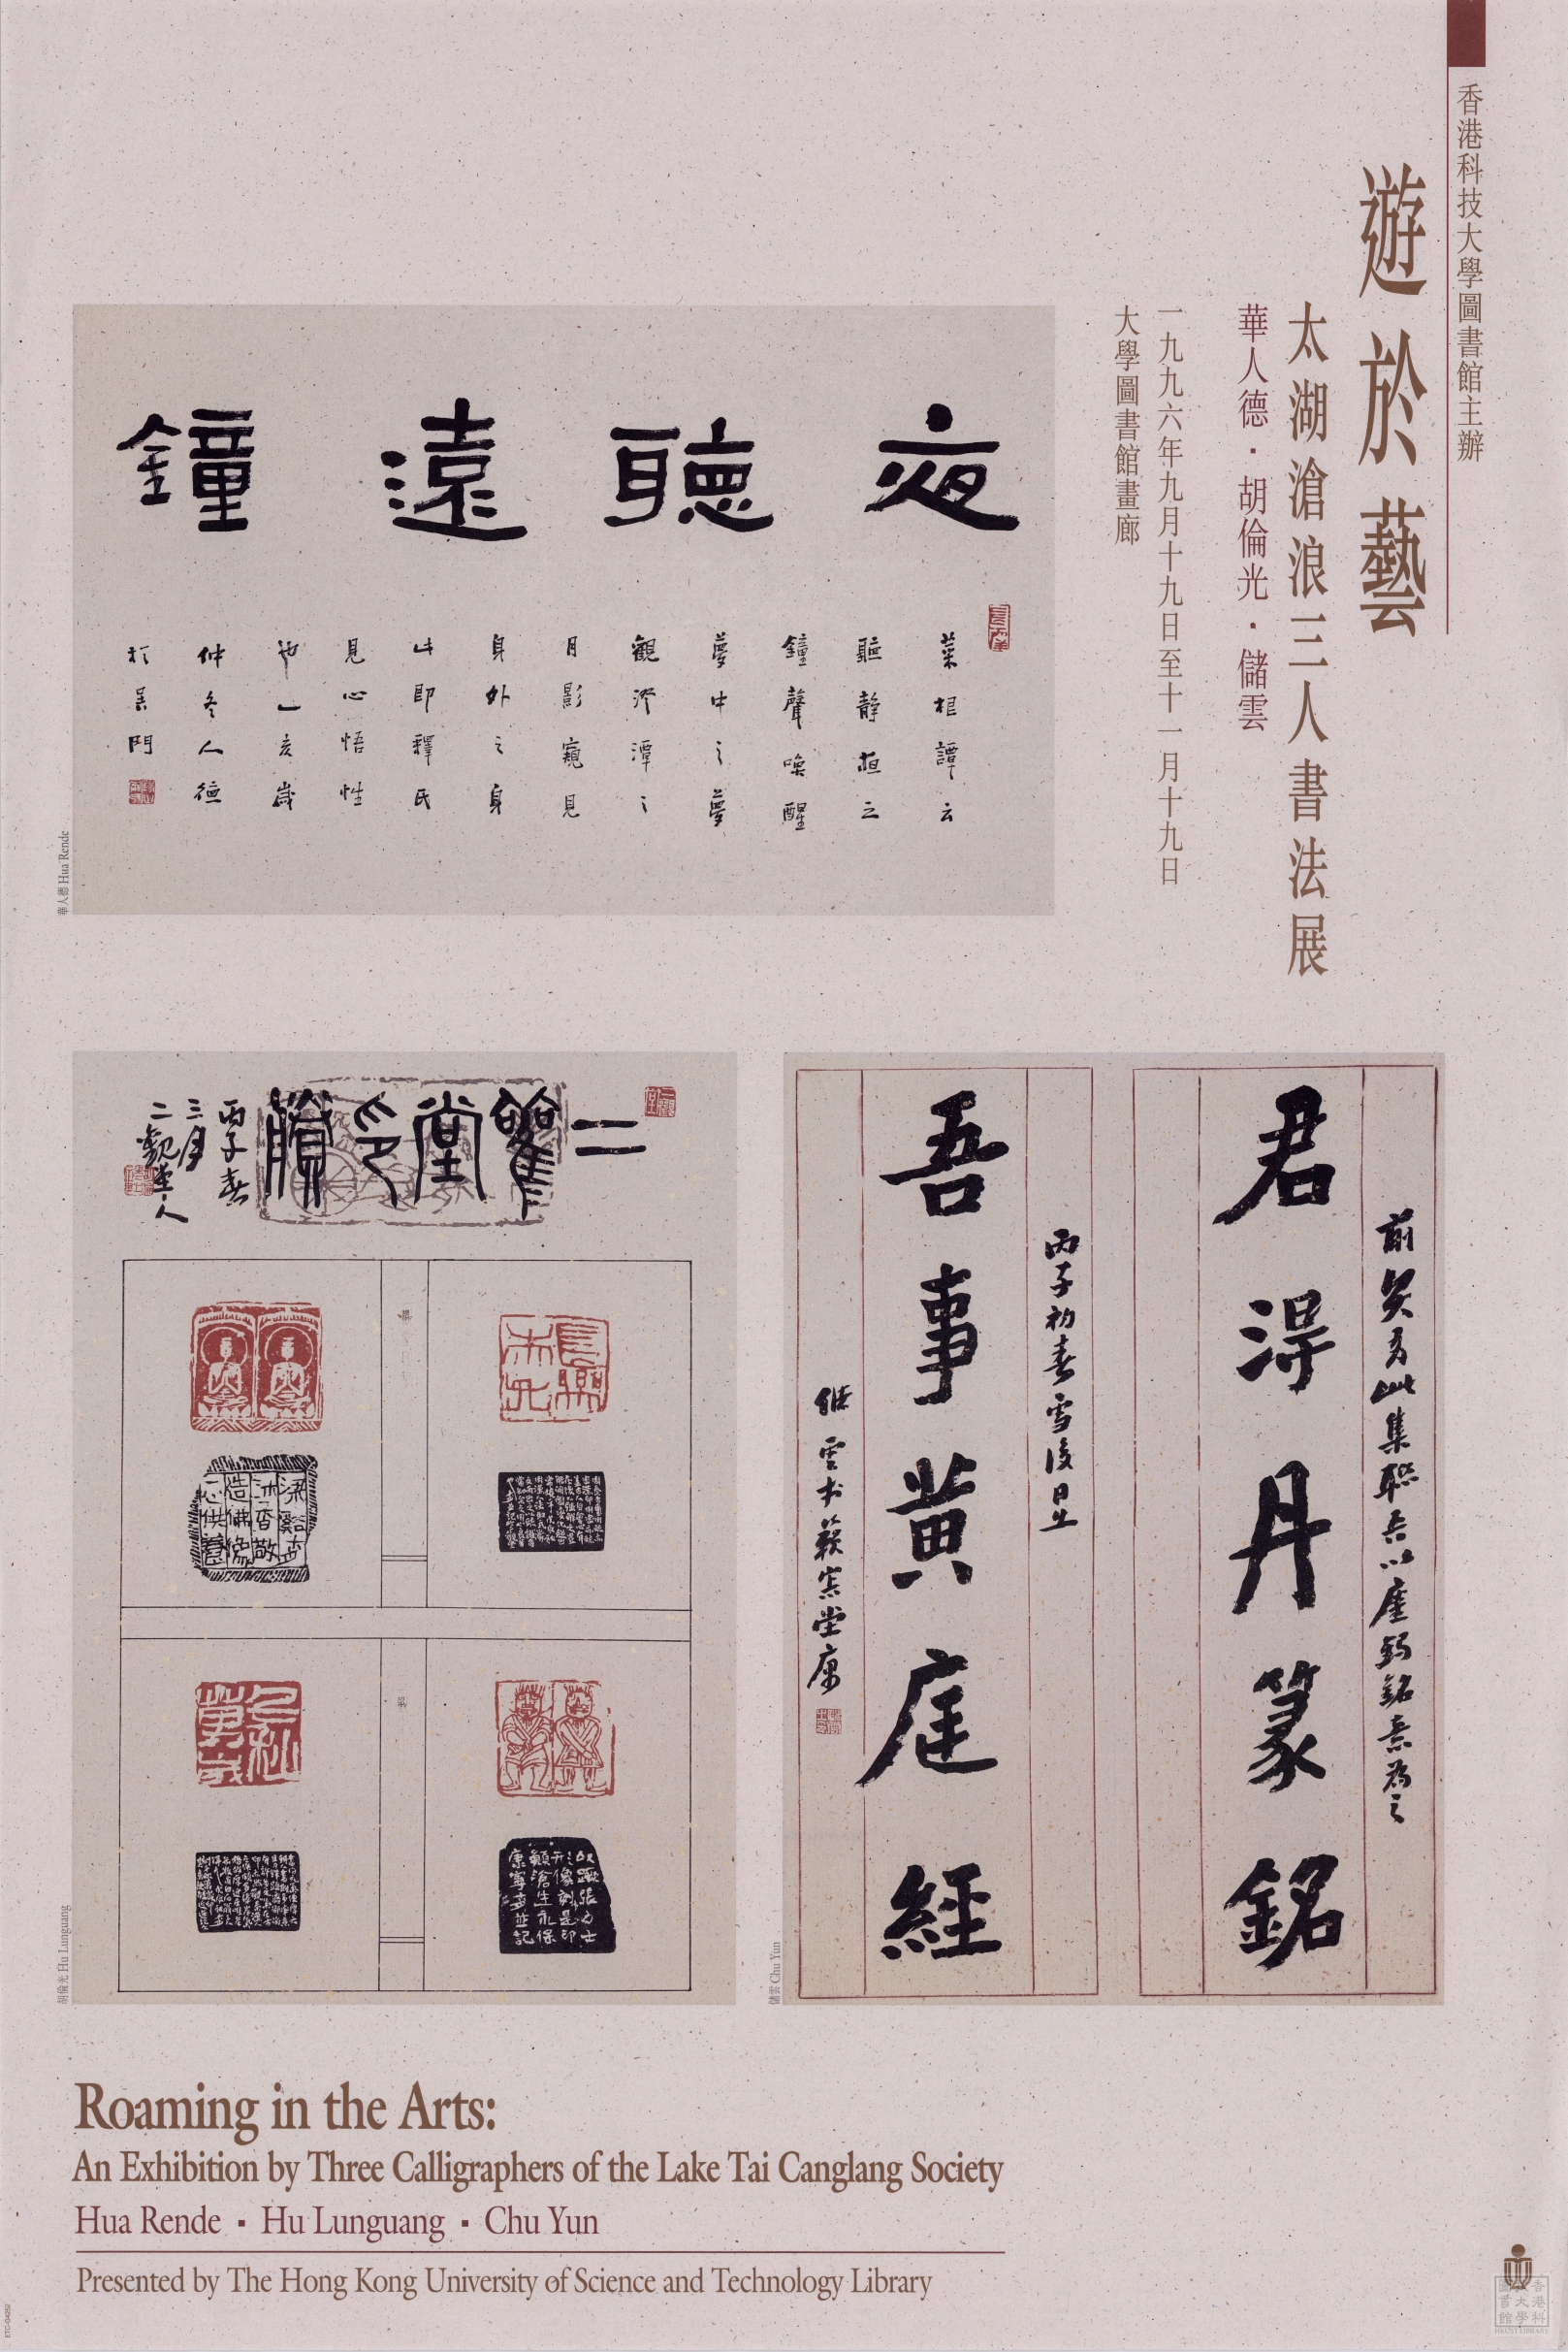 香港科技大學圖書館主辦
遊於藝
太湖滄浪三人書法展
華人德・胡倫光・儲雲
一九九六年九月十九日至十一月十九日
大學圖書館畫廊
夜聽遠鐘
菜根譚云
聽靜夜之
鐘聲喚醒
夢中之夢
觀澄潭之
月影窺見
身外之身
此即釋氏
見心悟性
也乙亥歲
仲冬人德
於吳門
華人德 Hua Rende
二觀堂印賸
丙子春
三月
二觀堂人
胡倫光 Hu Lunguang
君得丹篆銘
吾事黃庭經
丙子初春雪後日上
儲雲 Chu Yun
Roaming in the Arts:
An Exhibition by Three Calligraphers of the Lake Tai Canglang Society
Hua Rende ▪ Hu Lunguang ▪ Chu Yun
Presented by The Hong Kong University of Science and Technology Library
香港科技大學圖書館
HKUST LIBRARY